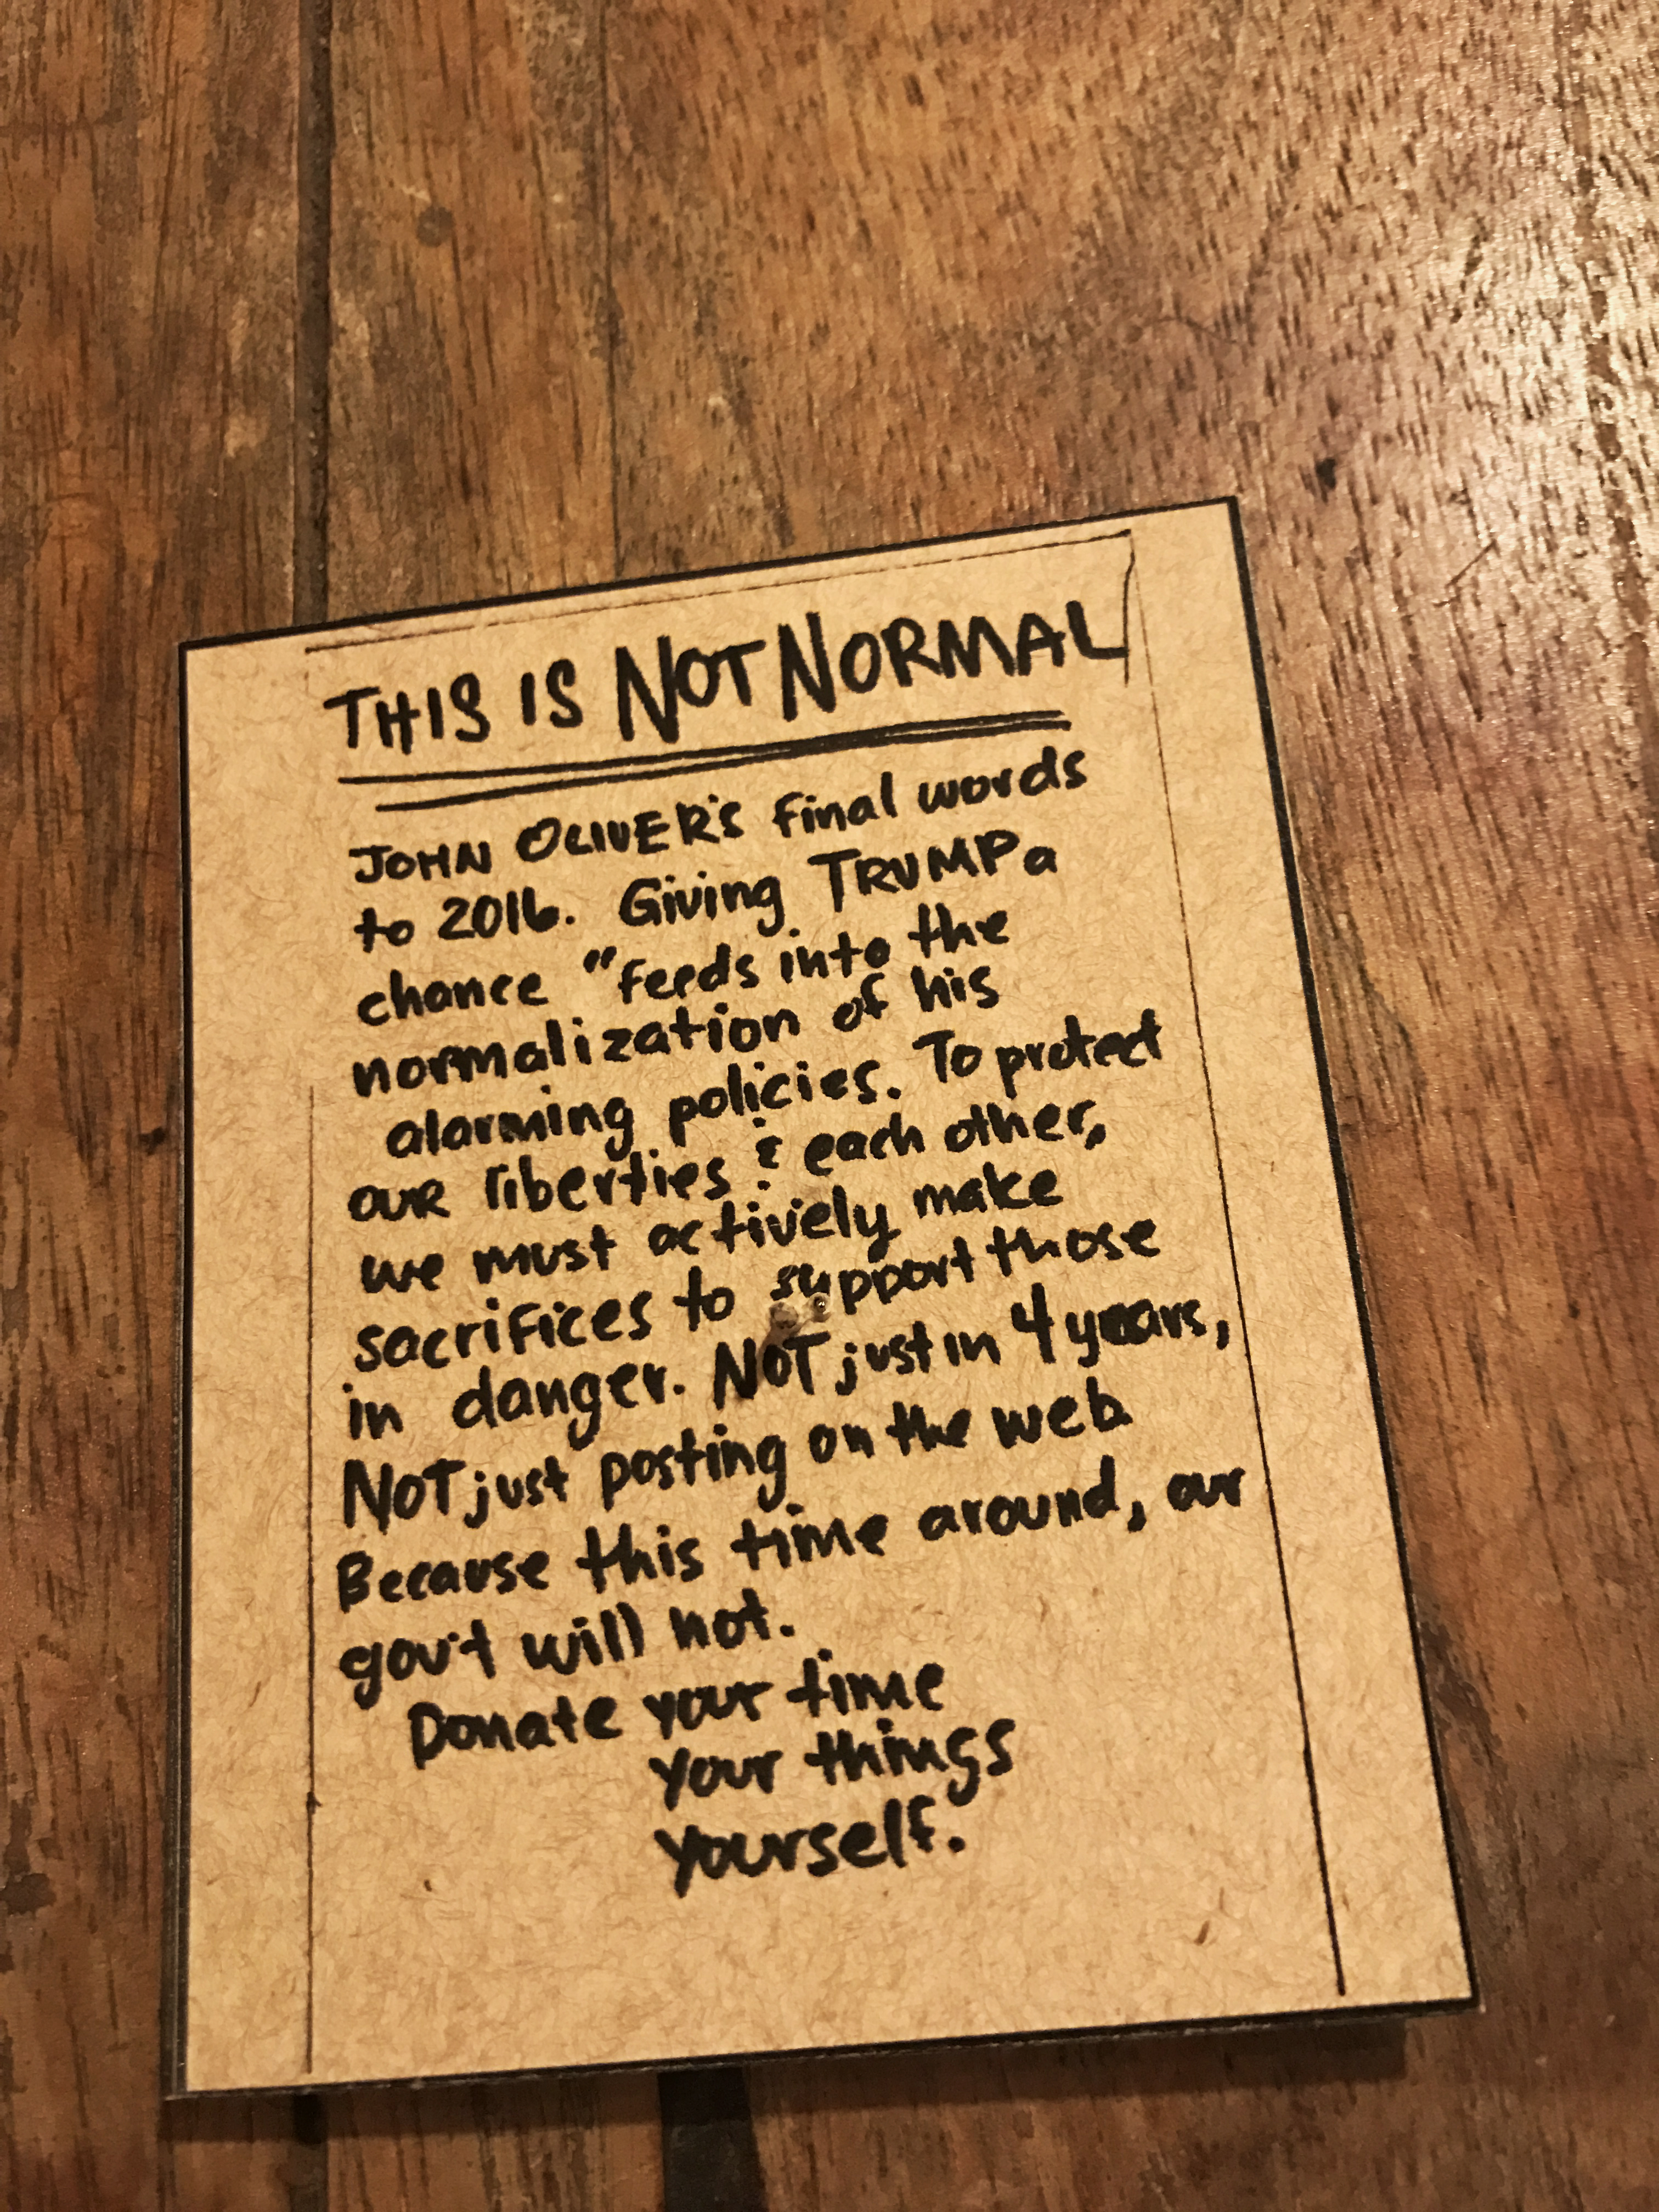 THIS IS NOT NORMAL
JOHN OLIVER'S final words
to 2016. Giving TRUMP a
chance "feeds into the
normalization of his
alarming policies. To protect
OUR liberties & each other,
we must actively make
sacrifices to support those
in danger. NOT just in 4 years,
NOT just posting on the web.
Because this time around, our
gov't will not.
Donate your time
your things
yourself.